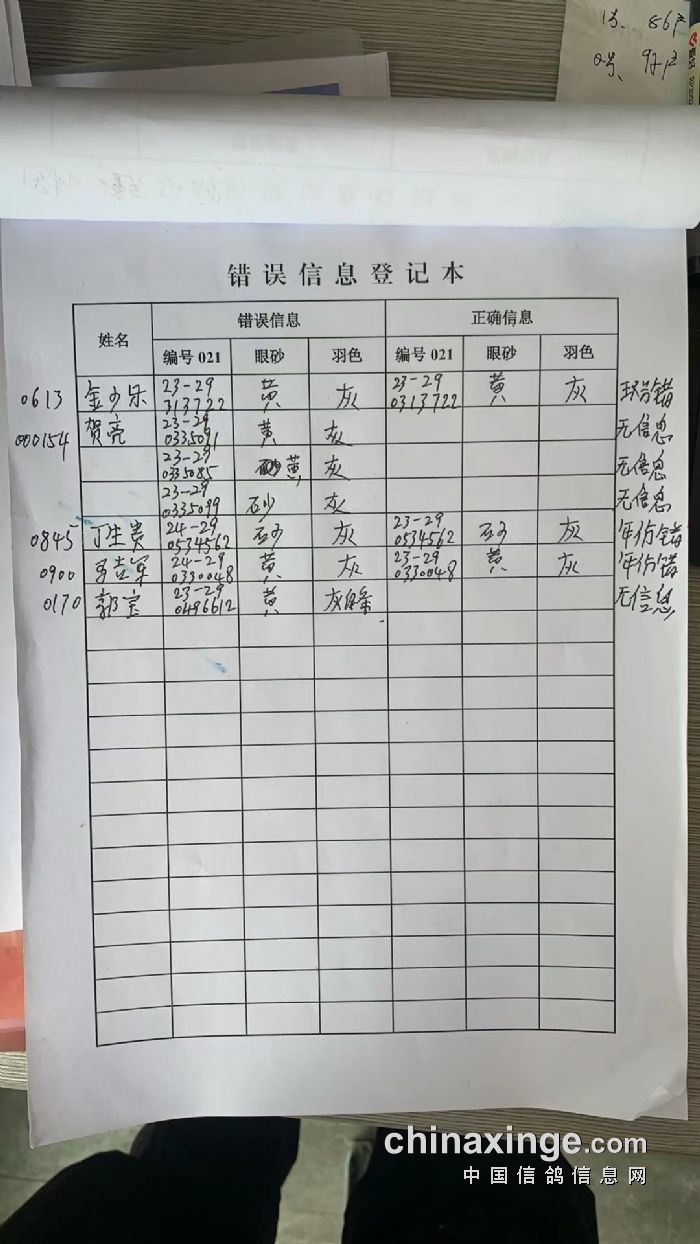 13、86户
错误信息登记本
姓名 错误信息 正确信息
编号 021 眼砂 羽色 编号 021 眼砂 羽色
0613 金少乐 23-29 313722 黄 灰 23-29 0313722 黄 灰 环号错
000154 贺亮 23-29 0335091 黄 灰 无信息
23-29 0335085 黄 灰 无信息
23-29 0335099 砂 灰 无信息
0845 丁生贵 24-29 0534562 砂 灰 23-29 0534562 砂 灰 年份错
0900 24-29 0330048 黄 灰 23-29 0330048 黄 灰 年份错
0170 郭宝 23-29 0496612 黄 灰白条 无信息
chinaxinge.com
中国信鸽信息网